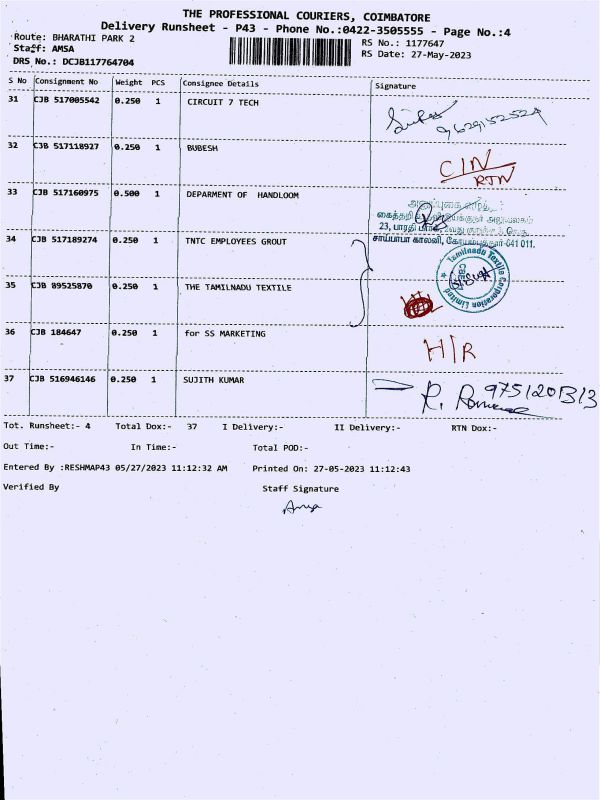 THE PROFESSIONAL COURIERS, COIMBATORE
Delivery Runsheet - P43 - Phone No.:0422-3505555 - Page No.:4
Route: BHARATHI PARK 2
RS No.: 1177647
Staff: AMSA
RS Date: 27-May-2023
DRS No.: DCJB117764704
S No Consignment No Weight PCS Consignee Details Signature
31 CJB 517005542 0.250 1 CIRCUIT 7 TECH
9629152524
32 CJB 517118927 0.250 1 BUBESH
CIN
RTN
33 CJB 517160975 0.500 1 DEPARMENT OF HANDLOOM
23, பாரதி
சாய்பாபா காலனி, கோயமுத்தூர்-641 011.
34 CJB 517189274 0.250 1 TNTC EMPLOYEES GROUT
Tamilnadu Textile Corporation Limited
35 CJB 89525870 0.250 1 THE TAMILNADU TEXTILE
36 CJB 184647 0.250 1 for SS MARKETING
H/R
37 CJB 516946146 0.250 1 SUJITH KUMAR
Tot. Runsheet:- 4 Total Dox:- 37 I Delivery:- II Delivery:- RTN Dox:-
Out Time:- In Time:- Total POD:-
Entered By :RESHMAP43 05/27/2023 11:12:32 AM Printed On: 27-05-2023 11:12:43
Verified By Staff Signature